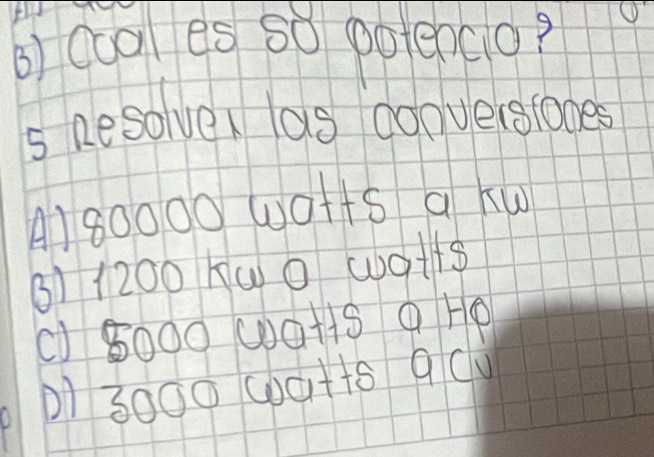 B) Cual es so potencia?
5 Resolver las conversiones
A) 80000 watts a kw
B) 1200 kw a watts
C) 5000 watts a Hp
D) 3000 watts a cv